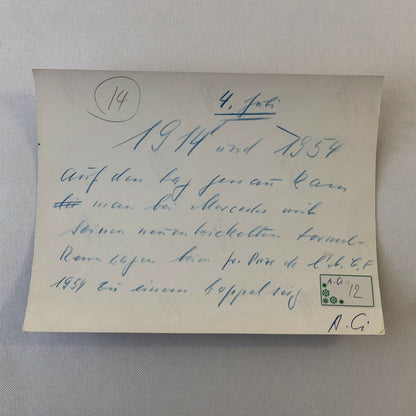 14
4. Juli
1914 und 1954
auf den tag genau kam
man bei Mercedes mit
seinen neuentwickelten Formel-
Rennwagen beim gr. Prix de l'A.C.F
1954 zu einem Doppelsieg
A. Ci
12
A. Ci